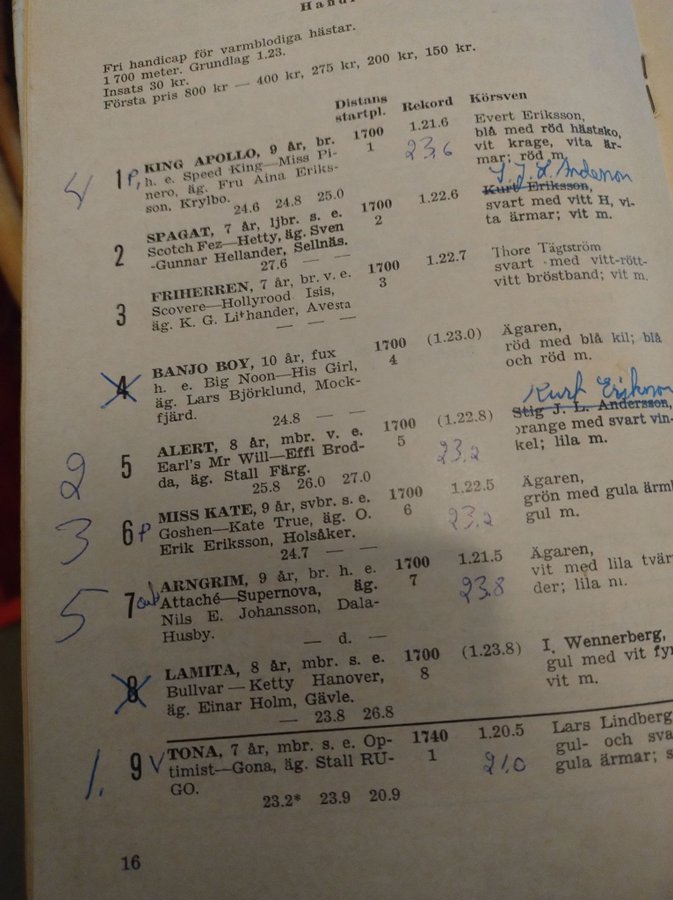 Fri handicap för varmblodiga hästar.
1 700 meter. Grundlag 1.23.
Insats 30 kr.
Första pris 800 kr — 400 kr, 275 kr, 200 kr, 150 kr.
Distans startpl. Rekord Körsven
4 1 p, KING APOLLO, 9 år, br. 1700 1.21.6 Evert Eriksson,
h. e. Speed King—Miss Pi- 1 23,6 blå med röd hästsko,
nero, äg. Fru Aina Eriks- vit krage, vita är-
son, Krylbo. mar; röd m.
24.6 24.8 25.0
S. J. L. Andersson
2 SPAGAT, 7 år, ljbr. s. e. 1700 1.22.6 Kurt Eriksson,
Scotch Fez—Hetty, äg. Sven 2 svart med vitt H, vi-
-Gunnar Hellander, Sellnäs. ta ärmar; vit m.
27.6 — —
3 FRIHERREN, 7 år, br. v. e. 1700 1.22.7 Thore Tägtström
Scovere—Hollyrood Isis, 3 svart med vitt-rött-
äg. K. G. Lithander, Avesta vitt bröstband; vit m.
— — —
4 BANJO BOY, 10 år, fux 1700 (1.23.0) Ägaren,
h. e. Big Noon—His Girl, 4 röd med blå kil; blå
äg. Lars Björklund, Mock- och röd m.
fjärd. 24.8 — —
Kurt Eriksson
2 5 ALERT, 8 år, mbr. v. e. 1700 (1.22.8) Stig J. L. Andersson,
Earl's Mr Will—Effi Brod- 5 23,2 orange med svart vin-
da, äg. Stall Färg. kel; lila m.
25.8 26.0 27.0
3 6 p MISS KATE, 9 år, svbr. s. e. 1700 1.22.5 Ägaren,
Goshen—Kate True, äg. O. 6 23,2 grön med gula ärm
Erik Eriksson, Holsåker. gul m.
24.7 — —
5 7 ARNGRIM, 9 år, br. h. e. 1700 1.21.5 Ägaren,
Attaché—Supernova, äg. 7 23.8 vit med lila tvär
Nils E. Johansson, Dala- der; lila m.
Husby. — d. —
8 LAMITA, 8 år, mbr. s. e. 1700 (1.23.8) I. Wennerberg,
Bullvar — Ketty Hanover, 8 gul med vit fyr
äg. Einar Holm, Gävle. vit m.
— 23.8 26.8
1. 9 V TONA, 7 år, mbr. s. e. Op- 1740 1.20.5 Lars Lindberg
timist—Gona, äg. Stall RU- 1 21,0 gul- och sva
GO. gula ärmar; s
23.2* 23.9 20.9
16